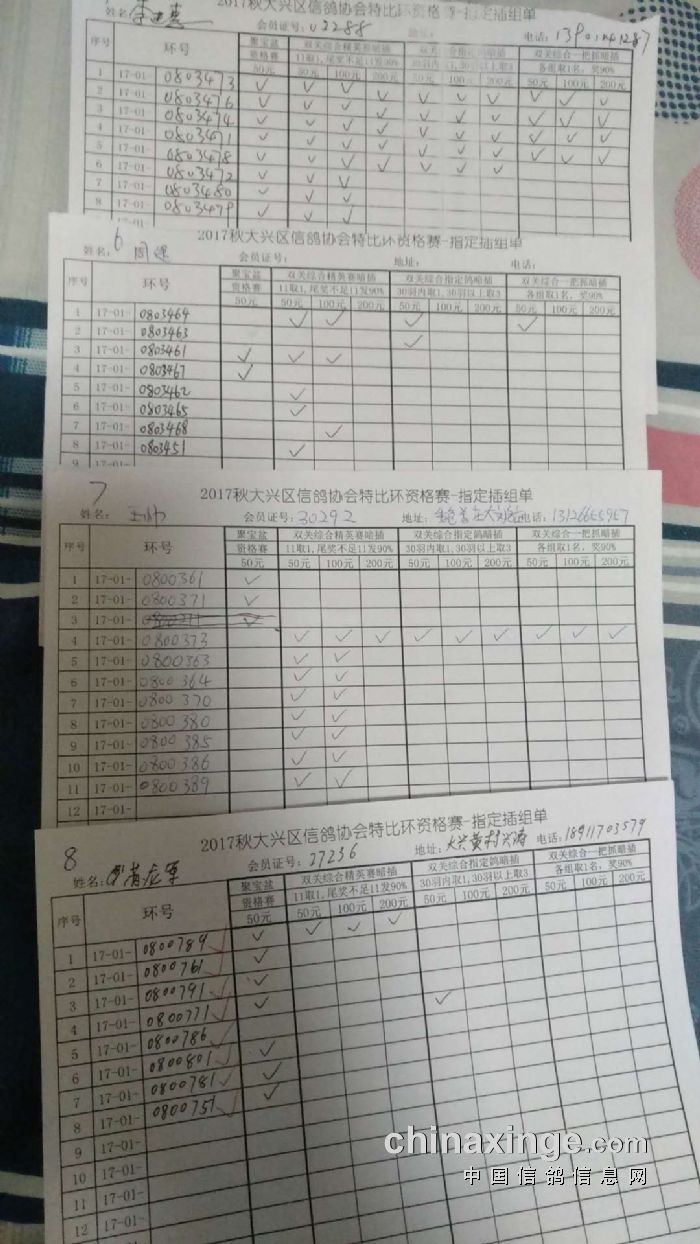 2017秋大兴区信鸽协会特比环资格赛-指定插组单
姓名: 会员证号: 02288 地址: 电话:
序号 环号 聚宝盆 双关综合精英赛暗插 双关综合指定鸽暗插 双关综合一把抓暗插
资格赛 11取1,尾奖不足11发90% 30羽内取1,30羽以上取3 各组取1名,奖90%
50元 50元 100元 200元 50元 100元 200元 50元 100元 200元
1 17-01- 0803473 ✓ ✓ ✓
2 17-01- 0803476 ✓ ✓ ✓ ✓ ✓ ✓ ✓ ✓ ✓ ✓
3 17-01- 0803474
4 17-01- 0803471
5 17-01- 0803478
6 17-01- 0803472
7 17-01- 0803480
8 17-01- 0803479
17-01-
6
2017秋大兴区信鸽协会特比环资格赛-指定插组单
姓名: 周 会员证号: 地址: 电话:
序号 环号 聚宝盆 双关综合精英赛暗插 双关综合指定鸽暗插 双关综合一把抓暗插
资格赛 11取1,尾奖不足11发90% 30羽内取1,30羽以上取3 各组取1名,奖90%
50元 50元 100元 200元 50元 100元 200元 50元 100元 200元
1 17-01- 0803464 ✓ ✓ ✓ ✓
2 17-01- 0803463 ✓
3 17-01- 0803461 ✓ ✓ ✓
4 17-01- 0803467 ✓
5 17-01- 0803462 ✓
6 17-01- 0803465 ✓
7 17-01- 0803468 ✓
8 17-01- 0803451 ✓
9 17-01-
7
2017秋大兴区信鸽协会特比环资格赛-指定插组单
姓名: 王帅 会员证号: 30292 地址: 电话: 13126655957
序号 环号 聚宝盆 双关综合精英赛暗插 双关综合指定鸽暗插 双关综合一把抓暗插
资格赛 11取1,尾奖不足11发90% 30羽内取1,30羽以上取3 各组取1名,奖90%
50元 50元 100元 200元 50元 100元 200元 50元 100元 200元
1 17-01- 0800361 ✓
2 17-01- 0800371 ✓
3 17-01- ✓
4 17-01- 0800373 ✓ ✓ ✓ ✓ ✓ ✓ ✓ ✓ ✓
5 17-01- 0800363 ✓ ✓
6 17-01- 0800364 ✓ ✓
7 17-01- 0800370 ✓ ✓
8 17-01- 0800380 ✓ ✓
9 17-01- 0800385 ✓ ✓
10 17-01- 0800386 ✓ ✓
11 17-01- 0800389 ✓ ✓
12 17-01-
8
2017秋大兴区信鸽协会特比环资格赛-指定插组单
姓名: 会员证号: 27236 地址: 大兴黄村兴涛 电话: 18911703579
序号 环号 聚宝盆 双关综合精英赛暗插 双关综合指定鸽暗插 双关综合一把抓暗插
资格赛 11取1,尾奖不足11发90% 30羽内取1,30羽以上取3 各组取1名,奖90%
50元 50元 100元 200元 50元 100元 200元 50元 100元 200元
1 17-01- 0800789 ✓ ✓ ✓ ✓ ✓
2 17-01- 0800761 ✓ ✓
3 17-01- 0800791 ✓ ✓
4 17-01- 0800771 ✓ ✓ ✓
5 17-01- 0800786 ✓
6 17-01- 0800801 ✓ ✓
7 17-01- 0800781 ✓ ✓
8 17-01- 0800751 ✓ ✓
9 17-01-
10 17-01-
11 17-01-
12 17-01-
chinaxinge.com
中国信鸽信息网